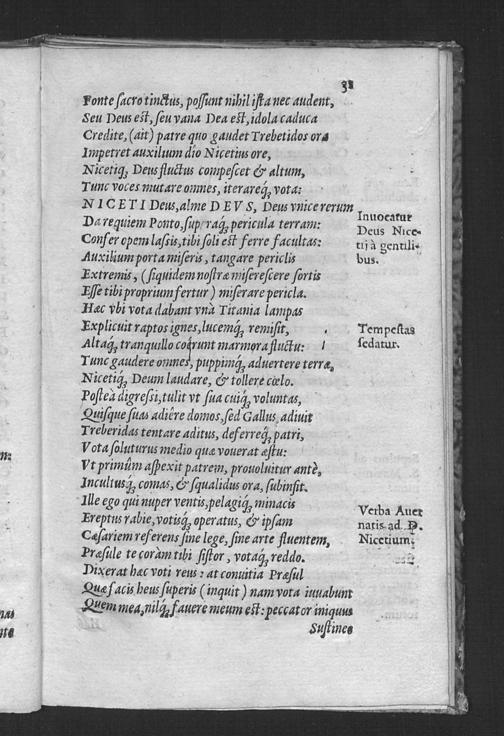 31
Fonte sacro tinctus, possunt nihil ista nec audent,
Seu Deus est, seu vana Dea est, idola caduca
Credite, (ait) patre quo gaudet Trebetidos ora
Impetret auxilium dio Nicetius ore,
Nicetiq́; Deus fluctus compescet & altum,
Tunc voces mutare omnes, iterareq́; vota:
NICETI Deus, alme DEVS, Deus vnice rerum
Da requiem Ponto, supraq́; pericula terram:
Confer opem lassis, tibi soli est ferre facultas:
Auxilium porta miseris, tangare periclis
Extremis, (siquidem nostræ miserescere sortis
Esse tibi proprium fertur) miserare pericla.
Hæc vbi vota dabant vnà Titania lampas
Explicuit raptos ignes, lucemq́; remisit,
Altaq́; tranquillo coërunt marmora fluctu:
Tunc gaudere omnes, puppimq́; aduertere terræ,
Nicetiq́; Deum laudare, & tollere cœlo.
Posteà digressi, tulit vt sua cuiq́; voluntas,
Quisque suas adiêre domos, sed Gallus adiuit
Treberidas tentare aditus, deferreq́; patri,
Vota soluturus medio quæ vouerat æstu:
Vt primùm aspexit patrem, prouoluitur antè,
Incultusq́; comas, & squalidus ora, subinfit.
Ille ego qui nuper ventis, pelagiq́; minacis
Ereptus rabie, votisq́; operatus, & ipsam
Cæsariem referens sine lege, sine arte fluentem,
Præsule te coràm tibi sistor, votaq́; reddo.
Dixerat hæc voti reus: at conuitia Præsul
Quæ facis heus superis (inquit) nam vota iuuabunt
Quem mea, nilq́; fauere meum est: peccator iniquus
Sustinee
Inuocatur
Deus Nice-
tij à gentili-
bus.
Tempestas
sedatur.
Verba Auer
natis ad D.
Nicetium;